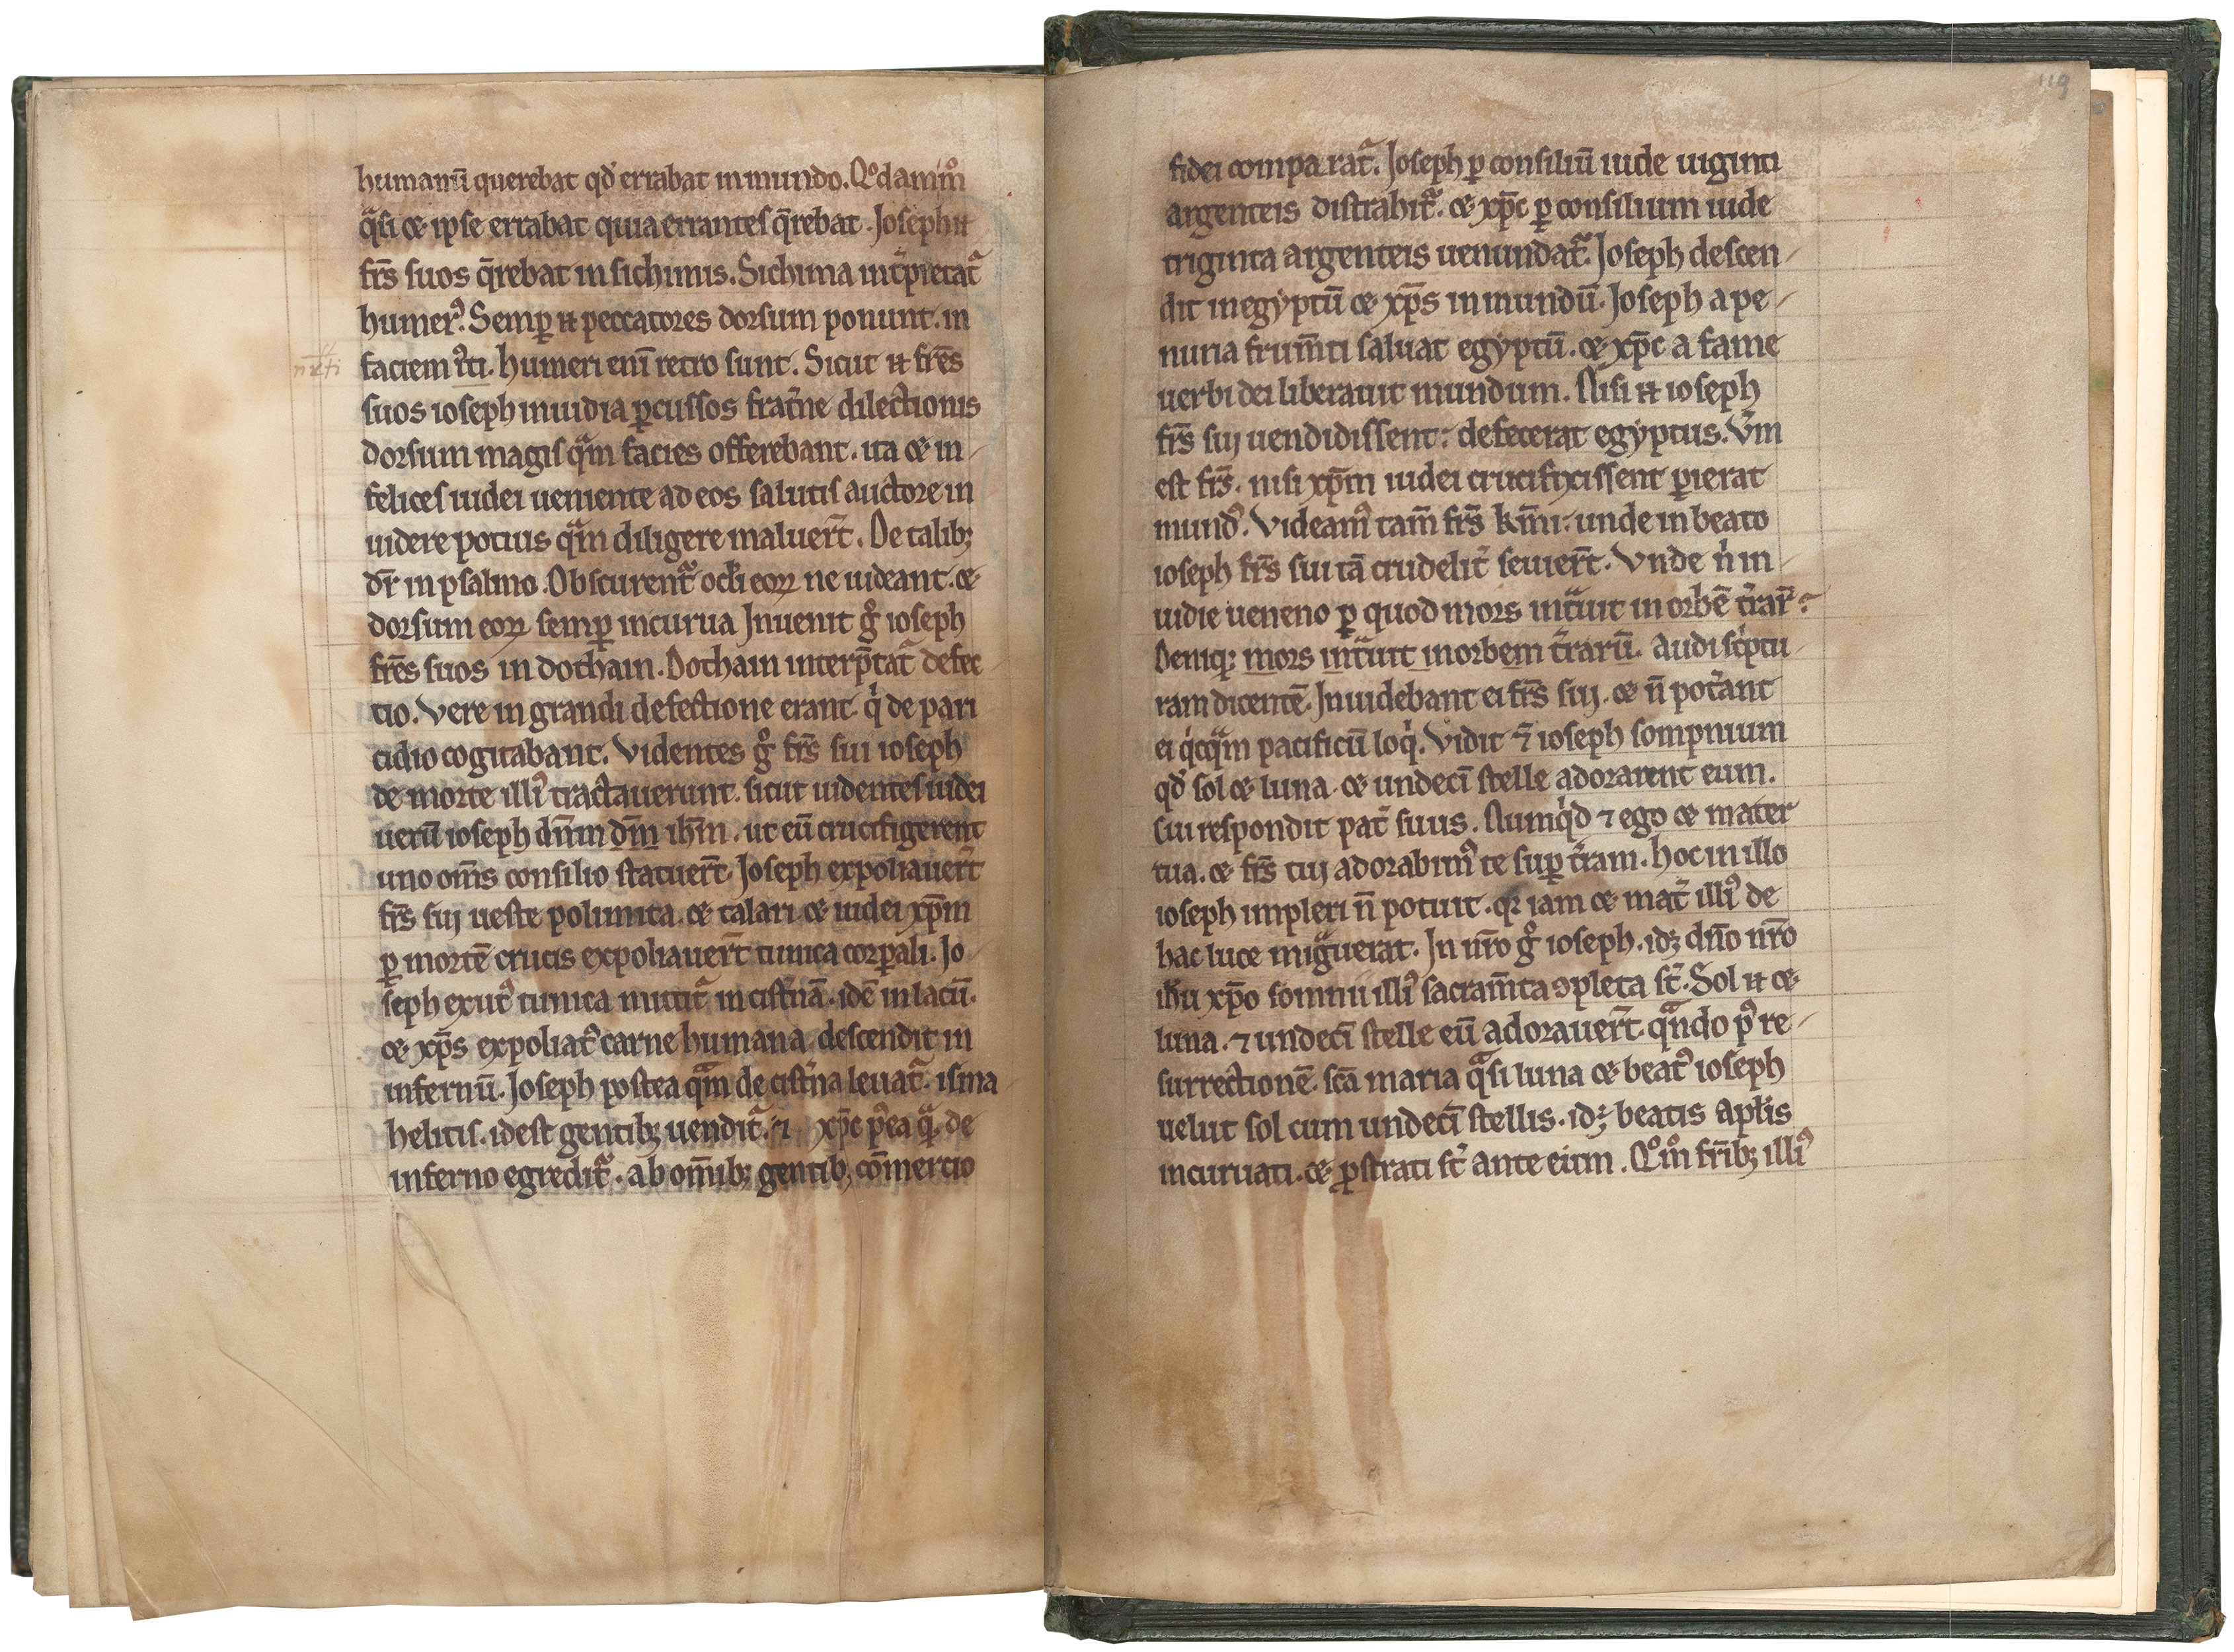 humanū querebat qd̕ errabat in mundo. Qͦdam̄mͦ
qᷓsi ⁊ ipse errabat quia errantes q̄rebat. Joseph ⁊
fr̄s suos q̄rebat in sichimis. Sichima int̕pretatᷓ
humer᷒. Semꝑ ⁊ peccatores dorsum ponunt. in
faciem r̕ti. humeri enī retro sunt. Sicut ⁊ fr̄es
suos ioseph inuidia ꝑcussos frat̕ne dilectionis
dorsum magis qᷓm facies offerebant. ita ⁊ in-
felices iudei ueniente ad eos salutis auctore in
uidere potius qᷓm diligere maluer̄t. De talibꝫ
dr̄ in psalmo. Obscurentᷓ oc̄li eoꝝ ne uideant. ⁊
dorsum eoꝝ semꝑ incurua Inuenit gͦ ioseph
fr̄es suos in dothain. Dothain interp̄tatᷓ defec
tio. Vere in grandi defectione erant qͥ de pari
cidio cogitabant. Videntes gͦ fr̄s sui ioseph
de morte illi᷒ tractauerunt. sicut uidentes iudei
uerū ioseph dn̄m dm̄ ihm̄. ut eū crucifigerent
uno om̄s consilio statuer̄t. Joseph expoliauer̄t
fr̄s sij ueste polimita. ⁊ talari. ⁊ iudei xp̄m
ꝑ mortē crucis expoliauer̄t tunica corꝑali. Jo-
seph exut᷒ tunica mittitᷓ in cist̕nā. idē in lacū.
⁊ xp̄s expoliat᷒ carne humana descendit in
infernū. Joseph postea qᷓm de cist̕na leuatᷓ. isma
helitis. idest gentibꝫ uenditᷓ. ⁊ xp̄c p᷒ea qᷓ. de
inferno egreditᷓ. ab om̄ibꝫ gentibꝫ cōmercio
119
fidei comparatᷓ. Joseph ꝑ consiliū iude uiginti
argenteis distrahitᷓ. ⁊ xp̄c ꝑ consilium iude
triginta argenteis uenundatᷓ. Joseph descen-
dit in egyptū ⁊ xp̄s in mundū. Joseph a pe-
nuria frum̄ti saluat egyptū. ⁊ xp̄c a fame
uerbi dei liberauit mundum. Nisi ⁊ ioseph
fr̄s sij uendidissent: defecerat egyptus. Vm̄
est fr̄s. nisi xp̄m iudei crucifixissent ꝑierat
mund᷒. Videam᷒ tam̄ fr̄s km̄i. unde in beato
ioseph fr̄s sui tā crudelit̕ seuier̄t. Vnde nͥ in-
uidie ueneno ꝑ quod mors intᷓuit in orbē t̕rar̄?
Deniqꝫ mors intᷓuit in orbem t̕rarū. audi sc̕ptu-
ram dicentē. Inuidebant ei fr̄s sij. ⁊ n̄ pot̕ant
ei qͥcqᷓm pacificū loqͥ. Vidit ⁊̄ ioseph sompnium
qd̕ sol ⁊ luna. ⁊ undecī stelle adorarent eum.
Cui respondit pat̕ suus. Numqͥd ⁊ ego ⁊ mater
tua. ⁊ fr̄s tij adorabim᷒ te suꝑ t̕ram. hoc in illo
ioseph impleri n̄ potuit. qꝛ iam ⁊ mat̕ illi᷒ de
hac luce migᷓuerat. In nr̄o gͦ ioseph. idꝫ dn̄o nr̄o
ih̄u xp̄o somnii illi᷒ sacram̄ta ꝯpleta st̕. Sol ⁊ ⁊
luna. ⁊ undecī stelle eū adorauer̄t. qᷓndo p᷒ re-
surrectionē. sc̄a maria qᷓsi luna ⁊ beat᷒ ioseph
uelut sol cum undecī stellis. idꝫ beatis apl̄is
incuruati. ⁊ ꝓstrati st̕ ante eum. Qͦmͦ fr̄ibꝫ illi᷒